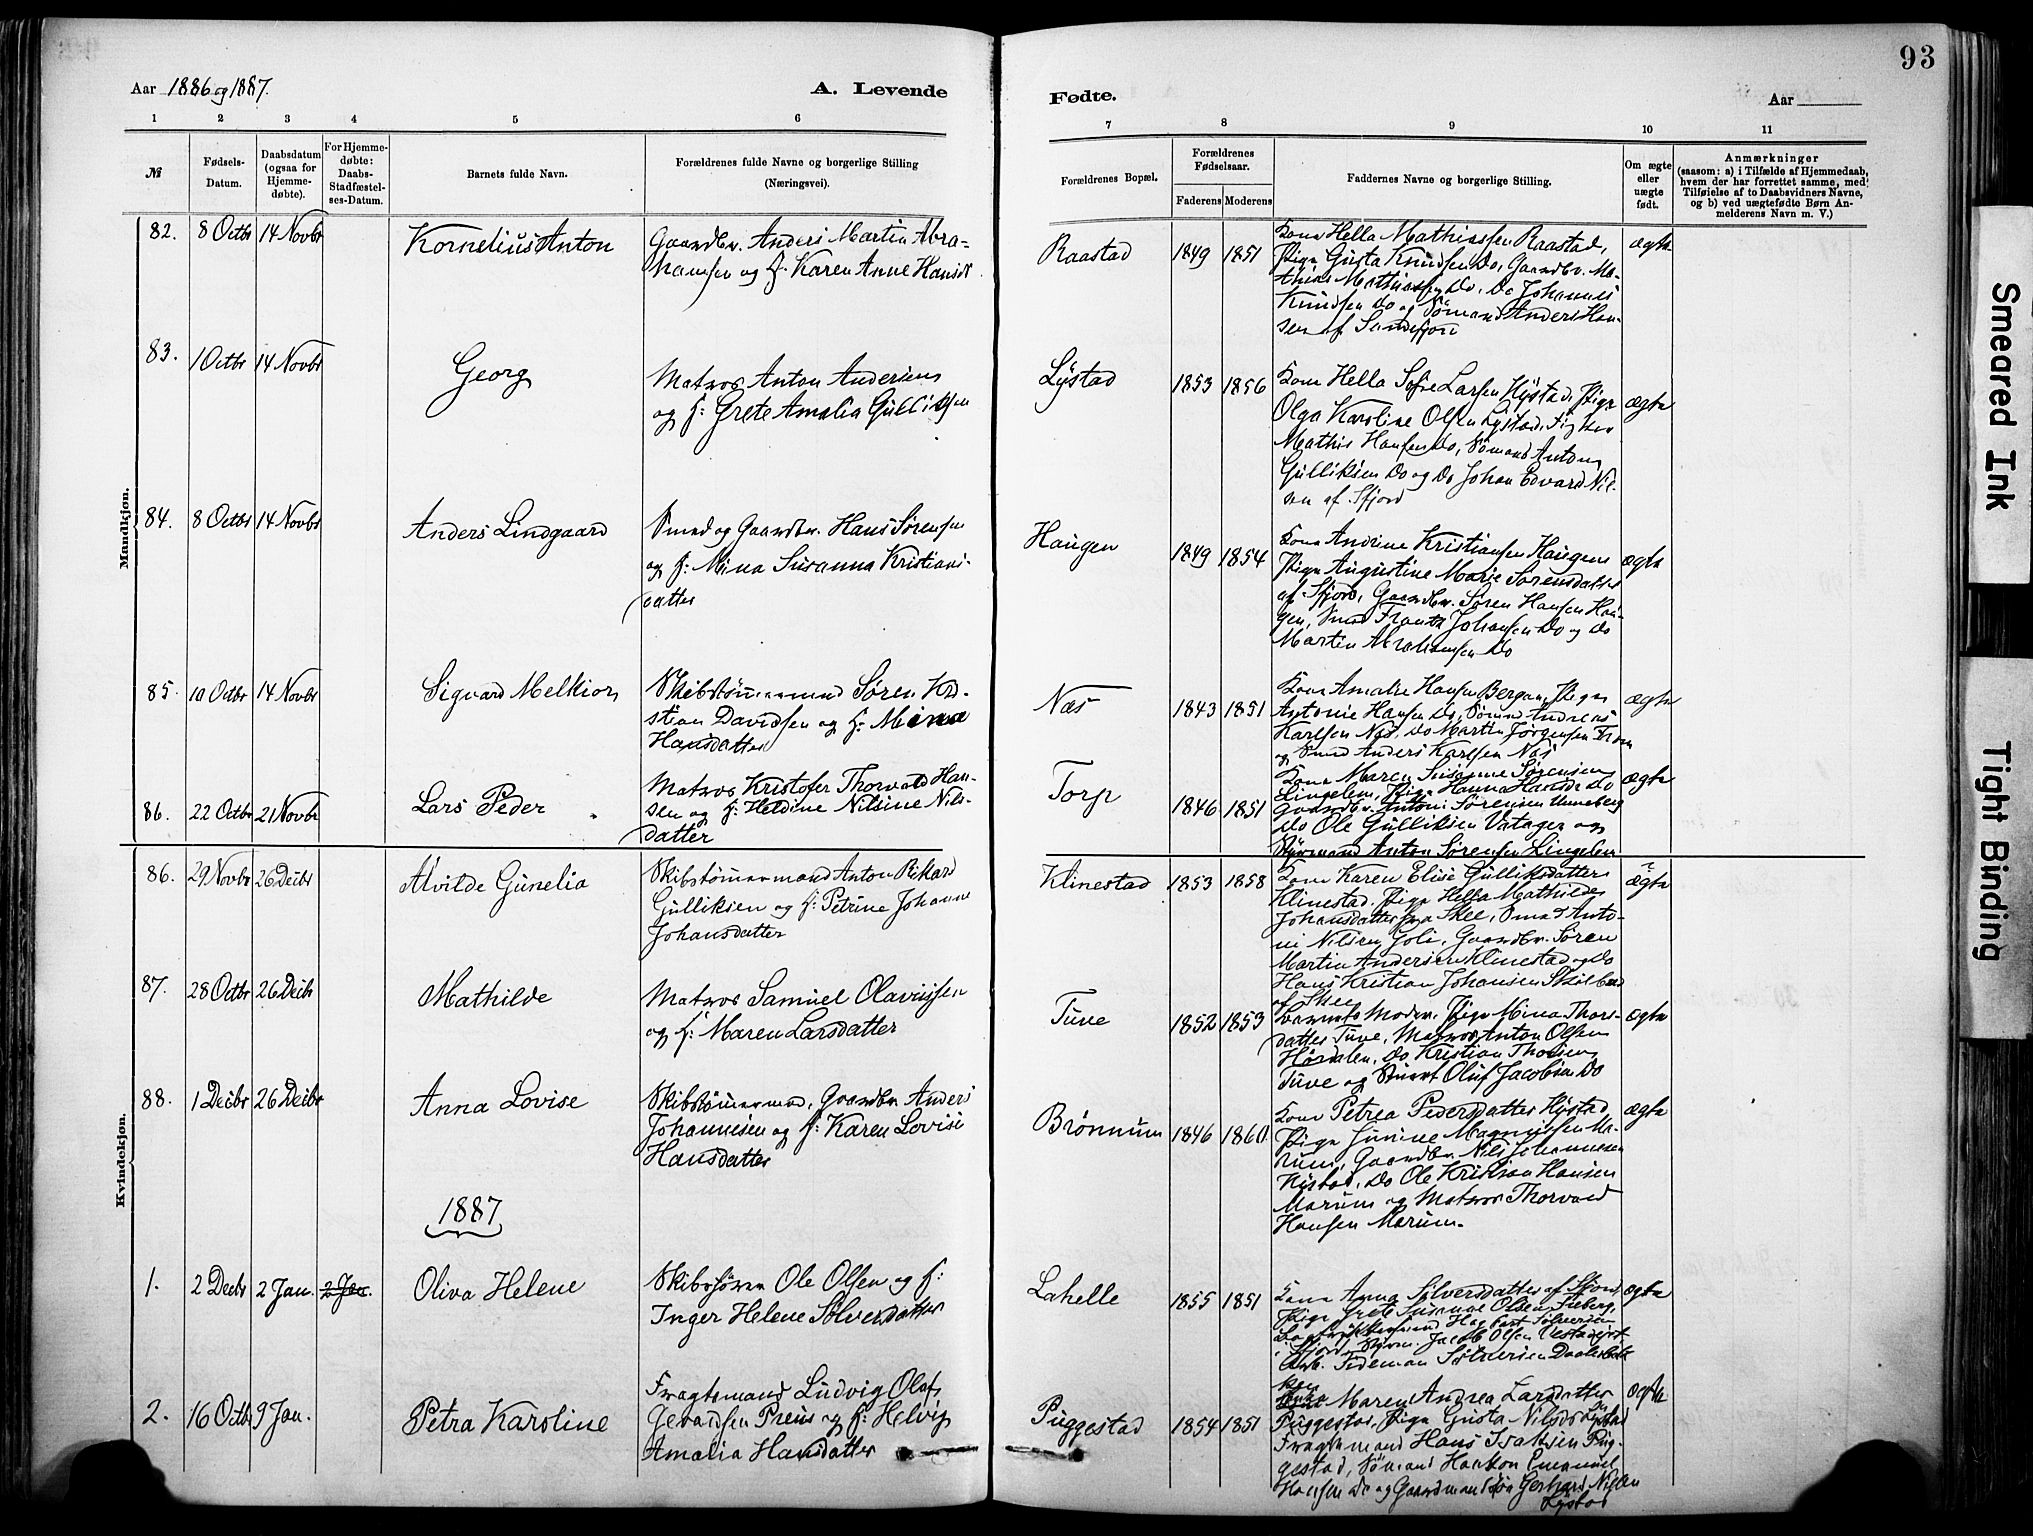 93
Aar 1886 og 1887.
A. Levende
Fødte.
Aar
1 2 3 4 5 6
7 8 9 10 11
№
Fødsels-
Datum.
Daabsdatum
(ogsaa for
Hjemme-
døbte).
For Hjemme-
døbte:
Daabs-
Stadfæstel-
ses-Datum.
Barnets fulde Navn.
Forældrenes fulde Navne og borgerlige Stilling
(Næringsvei).
Forældrenes Bopæl.
Forældrenes
Fødselsaar.
Faderens Moderens
Faddernes Navne og borgerlige Stilling.
Om ægte
eller
uægte
født.
Anmærkninger
(saasom: a) i Tilfælde af Hjemmedaab,
hvem der har forrettet samme, med
Tilføielse af to Daabsvidners Navne,
og b) ved uægtefødte Børn An-
melderens Navn m. V.)
Mandkjøn.
82. 8 Octbr 14 Novbr
Kornelius Anton
Gaardbr. Anders Martin Abra-
hamsen og h: Karen Anne Hansdr
Raastad
1849 1851
Kone Hella Mathiassen Raastad,
Pige Gusta Knudsen Do, Gaardbr. Ma-
thias Mathiassen Do, Do Johannes
Knudsen Do og Sømand Anders Han-
sen af Sandefjord
ægte
83. 1 Octbr 14 Novbr
Georg
Matros Anton Andersen
og h: Grete Amalia Gulliksen
Lystad
1853 1856
Kone Hella Sofie Larsen Kystad, Pige
Olga Karoline Olsen Lystad,
Mathis Hansen Do, Sømand Anton
Gulliksen Do og Do Johan Edvard Nil-
sen af Sfjord
ægte
84. 8 Octbr 14 Novbr
Anders Lindgaard
Smed og Gaardbr. Hans Sørensen
og h: Mina Susanna Kristians-
datter
Haugen
1849 1854
Kone Andrine Kristiansen Haugen
Pige Augustine Marie Sørensdatter
af Sfjord, Gaardbr. Søren Hansen Hau-
gen, Smed Frantz Johansen Do og Do
Martin Abrahamsen Do
ægte
85. 10 Octbr 14 Novbr
Sigvard Melkior
Skibstømmermand Søren Kri-
stian Davidsen og h: Mina
Hansdatter
Næs
1843 1851
Kone Amalie Hansen Bergan, Pige
Antonie Hansen Do, Sømd Andreas
Karlsen Næs, Do Martin Jørgensen Fram
og Smed Anders Karlsen Næs
ægte
86. 22 Octbr 21 Novbr
Lars Peder
Matros Kristofer Thorvald Han-
sen og h: Heldine Nilsine Nils-
datter
Torp
1846 1851
Kone Maren Susanne Sørensen
Lingelem, Pige Hanna Hansdr Do
Gaardbr. Anton Sørensen Unneberg
Do Ole Gulliksen Vatager og
Styrmand Anton Sørensen Lingelem
ægte
Kvindekjøn.
86. 29 Novbr 26 Decbr
Alvilde Gunelia
Skibstømmermand Anton Rikard
Gulliksen og h: Petrine Johanne
Johansdatter
Klinestad
1853 1858
Kone Karen Elise Gulliksdatter
Klinestad, Pige Hella Mathilde
Johansdatter fra Skee, Smed Anto-
ni Nilsen Goli, Gaardbr. Søren
Martin Andersen Klinestad og Do
Hans Kristian Johansen Skolberd
af Skee
ægte
87. 28 Octbr 26 Decbr
Mathilde
Matros Samuel Olavussen
og h: Maren Larsdatter
Tuve
1852 1853
Barnets Moder, Pige Mina Thors-
datter Tuve, Matros Anton Olsen
Hørdalen, Do Kristian Thorsen
Tuve og Stuert Oluf Jacobsen Do
ægte
88. 1 Decbr 26 Decbr
Anna Lovise
Skibstømermand, Gaardbr Anders
Johannesen og h: Karen Lovise
Hansdatter
Brønnum
1846 1860
Kone Petrea Pedersdatter Kystad,
Pige Junine Magnussen Ma-
rum, Gaardbr. Nils Johannesen
Kystad, Do Ole Kristian Hansen
Marum og Matros Thorvald
Hansen Marum.
ægte
1887
1. 2 Decbr 2 Jan. 2 Jan.
Oliva Helene
Skibsfører Ole Olsen og h:
Inger Helene Sølversdatter
Lahelle
1855 1851
Kone Anna Sølversdatter af Sfjord
Pige Grete Susanne Olsen Freberg,
Hagbart Sølversen
i Sfjord, Styrm. Jacob Olsen
Arb. Tideman Sølversen
ægte
2. 16 Octbr 9 Jan.
Petra Karoline
Fragtemand Ludvig Olaf
Gerardsen Preus og h: Helvig
Amalia Hansdatter
Puggestad
1854 1851
Maren Andrea Larsdatter
Puggestad, Pige Gusta Nilsdr Lystad
Fragtemand Hans Isaksen Pug-
gestad, Sømand Haakon Emanuel
Hansen Do og Gaardmandssøn Gerhard Nilsen
Lystad
ægte
Smeared Ink
Tight Binding